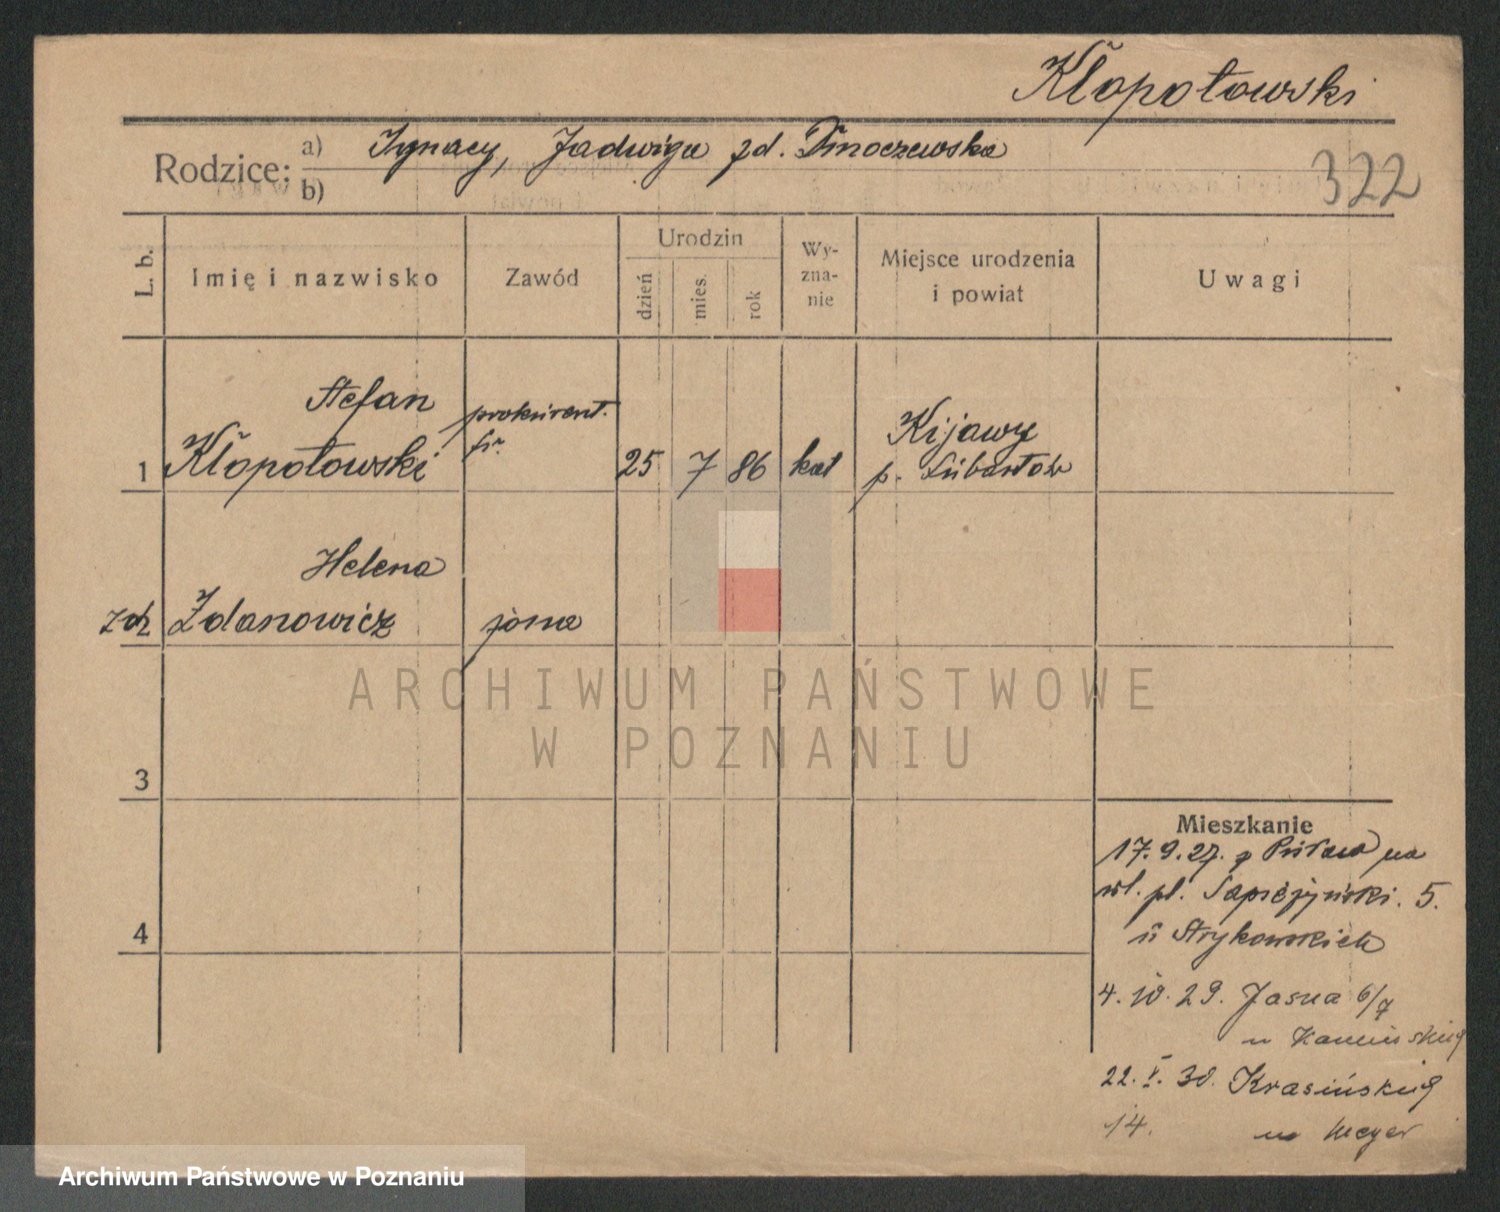 Kłopotowski
Rodzice:
a) Ignacy, Jadwiga zd.
b)
322
L. b.
Imię i nazwisko
Zawód
Urodzin
dzień
mies.
rok
Wy-
zna-
nie
Miejsce urodzenia
i powiat
Uwagi
1
Stefan
Kłopotowski
prokurent.
fir.
25
7
86
kat
Kijawy
p. Lubartów
Helena
Zdanowicz
żona
3
4
Mieszkanie
17.9.27. z na
wł. pl. Sapieżyński. 5.
u Strykowskich
4. 10. 29. Jasna 6/7
u
22. V. 30. Krasińskiej
14. u Meyer
ARCHIWUM PAŃSTWOWE
W POZNANIU
Archiwum Państwowe w Poznaniu